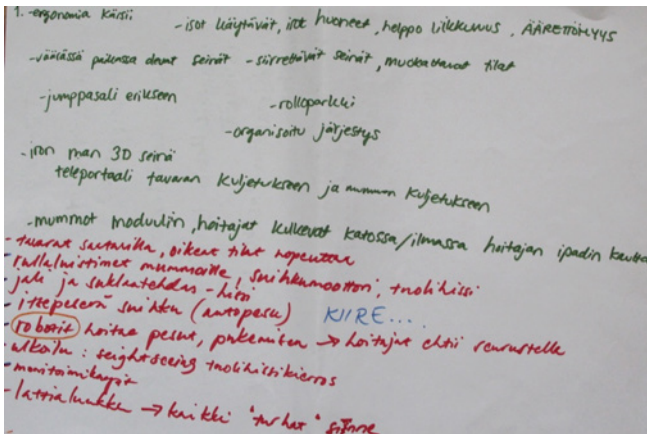 1. -ergonomia kärsii
-isot käytävät, isot huoneet, helppo liikkuvuus, ÄÄRETTÖMYYS
-väärässä paikassa olevat seinät -siirrettävät seinät, muokattavat tilat
-jumppasali erikseen
-rolloparkki
-organisoitu järjestys
-iron man 3D seinä
teleportaali tavaran kuljetukseen ja mummon kuljetukseen
-mummot moduulin, hoitajat kulkevat katossa/ilmassa hoitajan ipadin kautta
- tavarat saatavilla, oikeat tilat nopeuttaa
- rullaluistimet mummoille, suihkumoottori, tuolihissi
- jali ja suklaatehdas -hissi
- itsepesevä suihku (autopesu)
KIIRE....
- robotit hoitaa pesut, pukemisen → hoitajat ehtii seurustella
- ulkoilu: seightseeing tuolihissikierros
- monitoimikaapit
- lattialuukku → kaikki "turhat" sinne